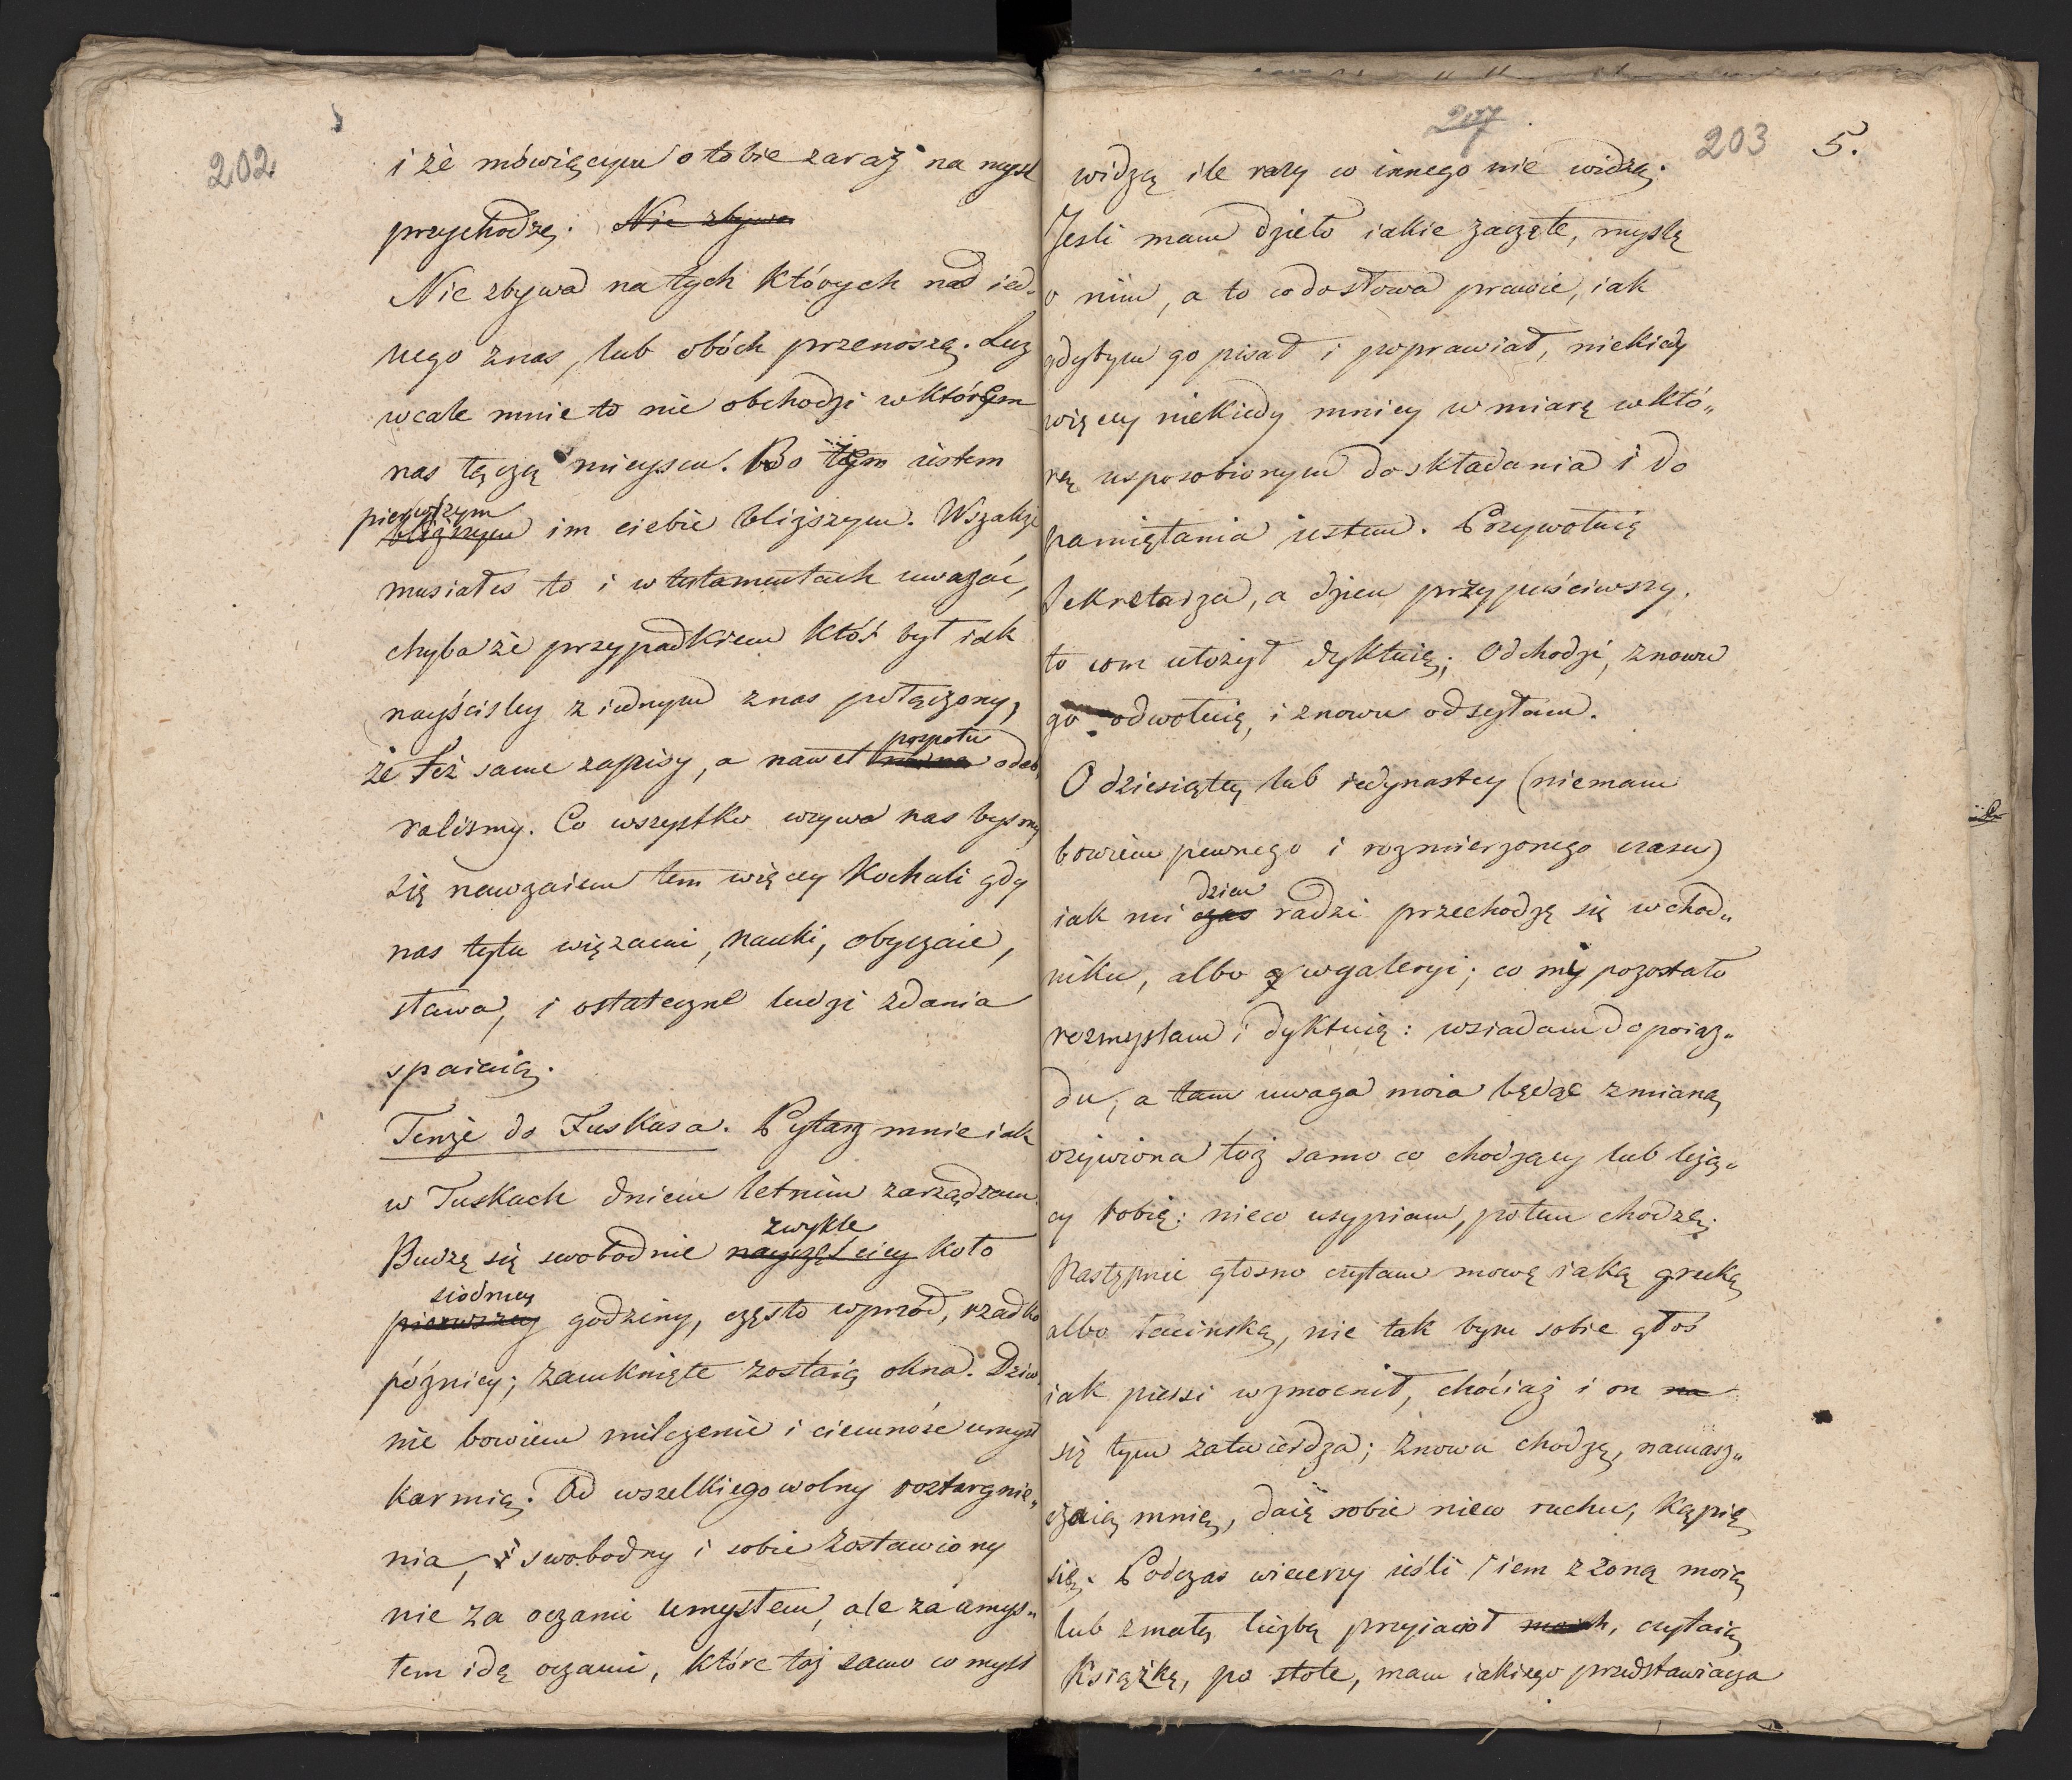 202
i że mówiącym o tobie zaraz na mysl
przychodzę. Nie zbywa
Nie zbywa na tych których nad ied-
nego znas, lub obóch przenoszą. Lecz
wcale mnie to nie obchodzi w którem
nas łączą mieyscu. Bo tem iestem
pierwszym
bliższym im ciebie bliższym. Wszakże
musiałeś to i w testamentach uważać,
chyba że przypadkiem któś był iak
nayściśley z iednym znas połączony,
pospołu
że też same zapisy, a nawet odeb
raliśmy. Co wszystko wzywa nas byśmy
się nawzaiem tem więcey kochali gdy
nas tylu więzami, nauki, obyczaie,
sława, i ostateczne ludzi zdania
spaiaią.
Tenże do Fuskusa. Pytasz mnie iak
w Tuskach dniem letnim zarządzam.
zwykle
Budzę się swobodnie nayczęściey koło
siódmey
pierwszey godziny, często wprzód, rzadko
późniey; zamknięte zostaią okna. Dziw
nie bowiem milczenie i ciemność umysł
karmią. Od wszelkiego wolny roztargnie„
nia, i swobodny i sobie zostawiony
nie za oczami umysłem, ale za umys„
łem idę oczami, które toż samo co mysl
207
203
5.
widzą ile razy co innego nie widzą.
Jeśli mam dzieło iakie zaczęte, myślę
o nim, a to co do słowa prawie, iak
gdybym go pisał i poprawiał, niekiedy
więcey niekiedy mniey w miarę w któ„
rey usposobionym do składania i do
pamiętania iestem. Przywołuię
Sekretarza, a dzien przypuściwszy.
to com ułożył dyktuię; Odchodzi, znowu
go odwołuię, i znowu odsyłam.
O dziesiątey lub iedynastey (niemam
bowiem pewnego i rozmierzonego czasu)
dzien
iak mi czas radzi przechodzę się w chod„
niku, albo w galeryi; co mi pozostało
rozmyslam i dyktuię: wsiadam do poiaz„
du, a tam uwaga moia będąc zmianą
ożywiona toż samo co chodzący lub leżą„
cy robię: nieco usypiam, potem chodzę;
Następnie głosno czytam mowę iaką grecką
albo łacińską, nie tak bym sobie głoś
iak piersi wzmocnił, chóciaż i on na
się tym zatwierdza; znowu chodzę, namasz„
czaią mnie, daię sobie nieco ruchu, kąpię
się. Podczas wieczerzy ieśli iem z żoną moią
lub z małą liczbą przyiaciół moich, czytaią
Książkę, po stole, mam iakiego przedstawiacza